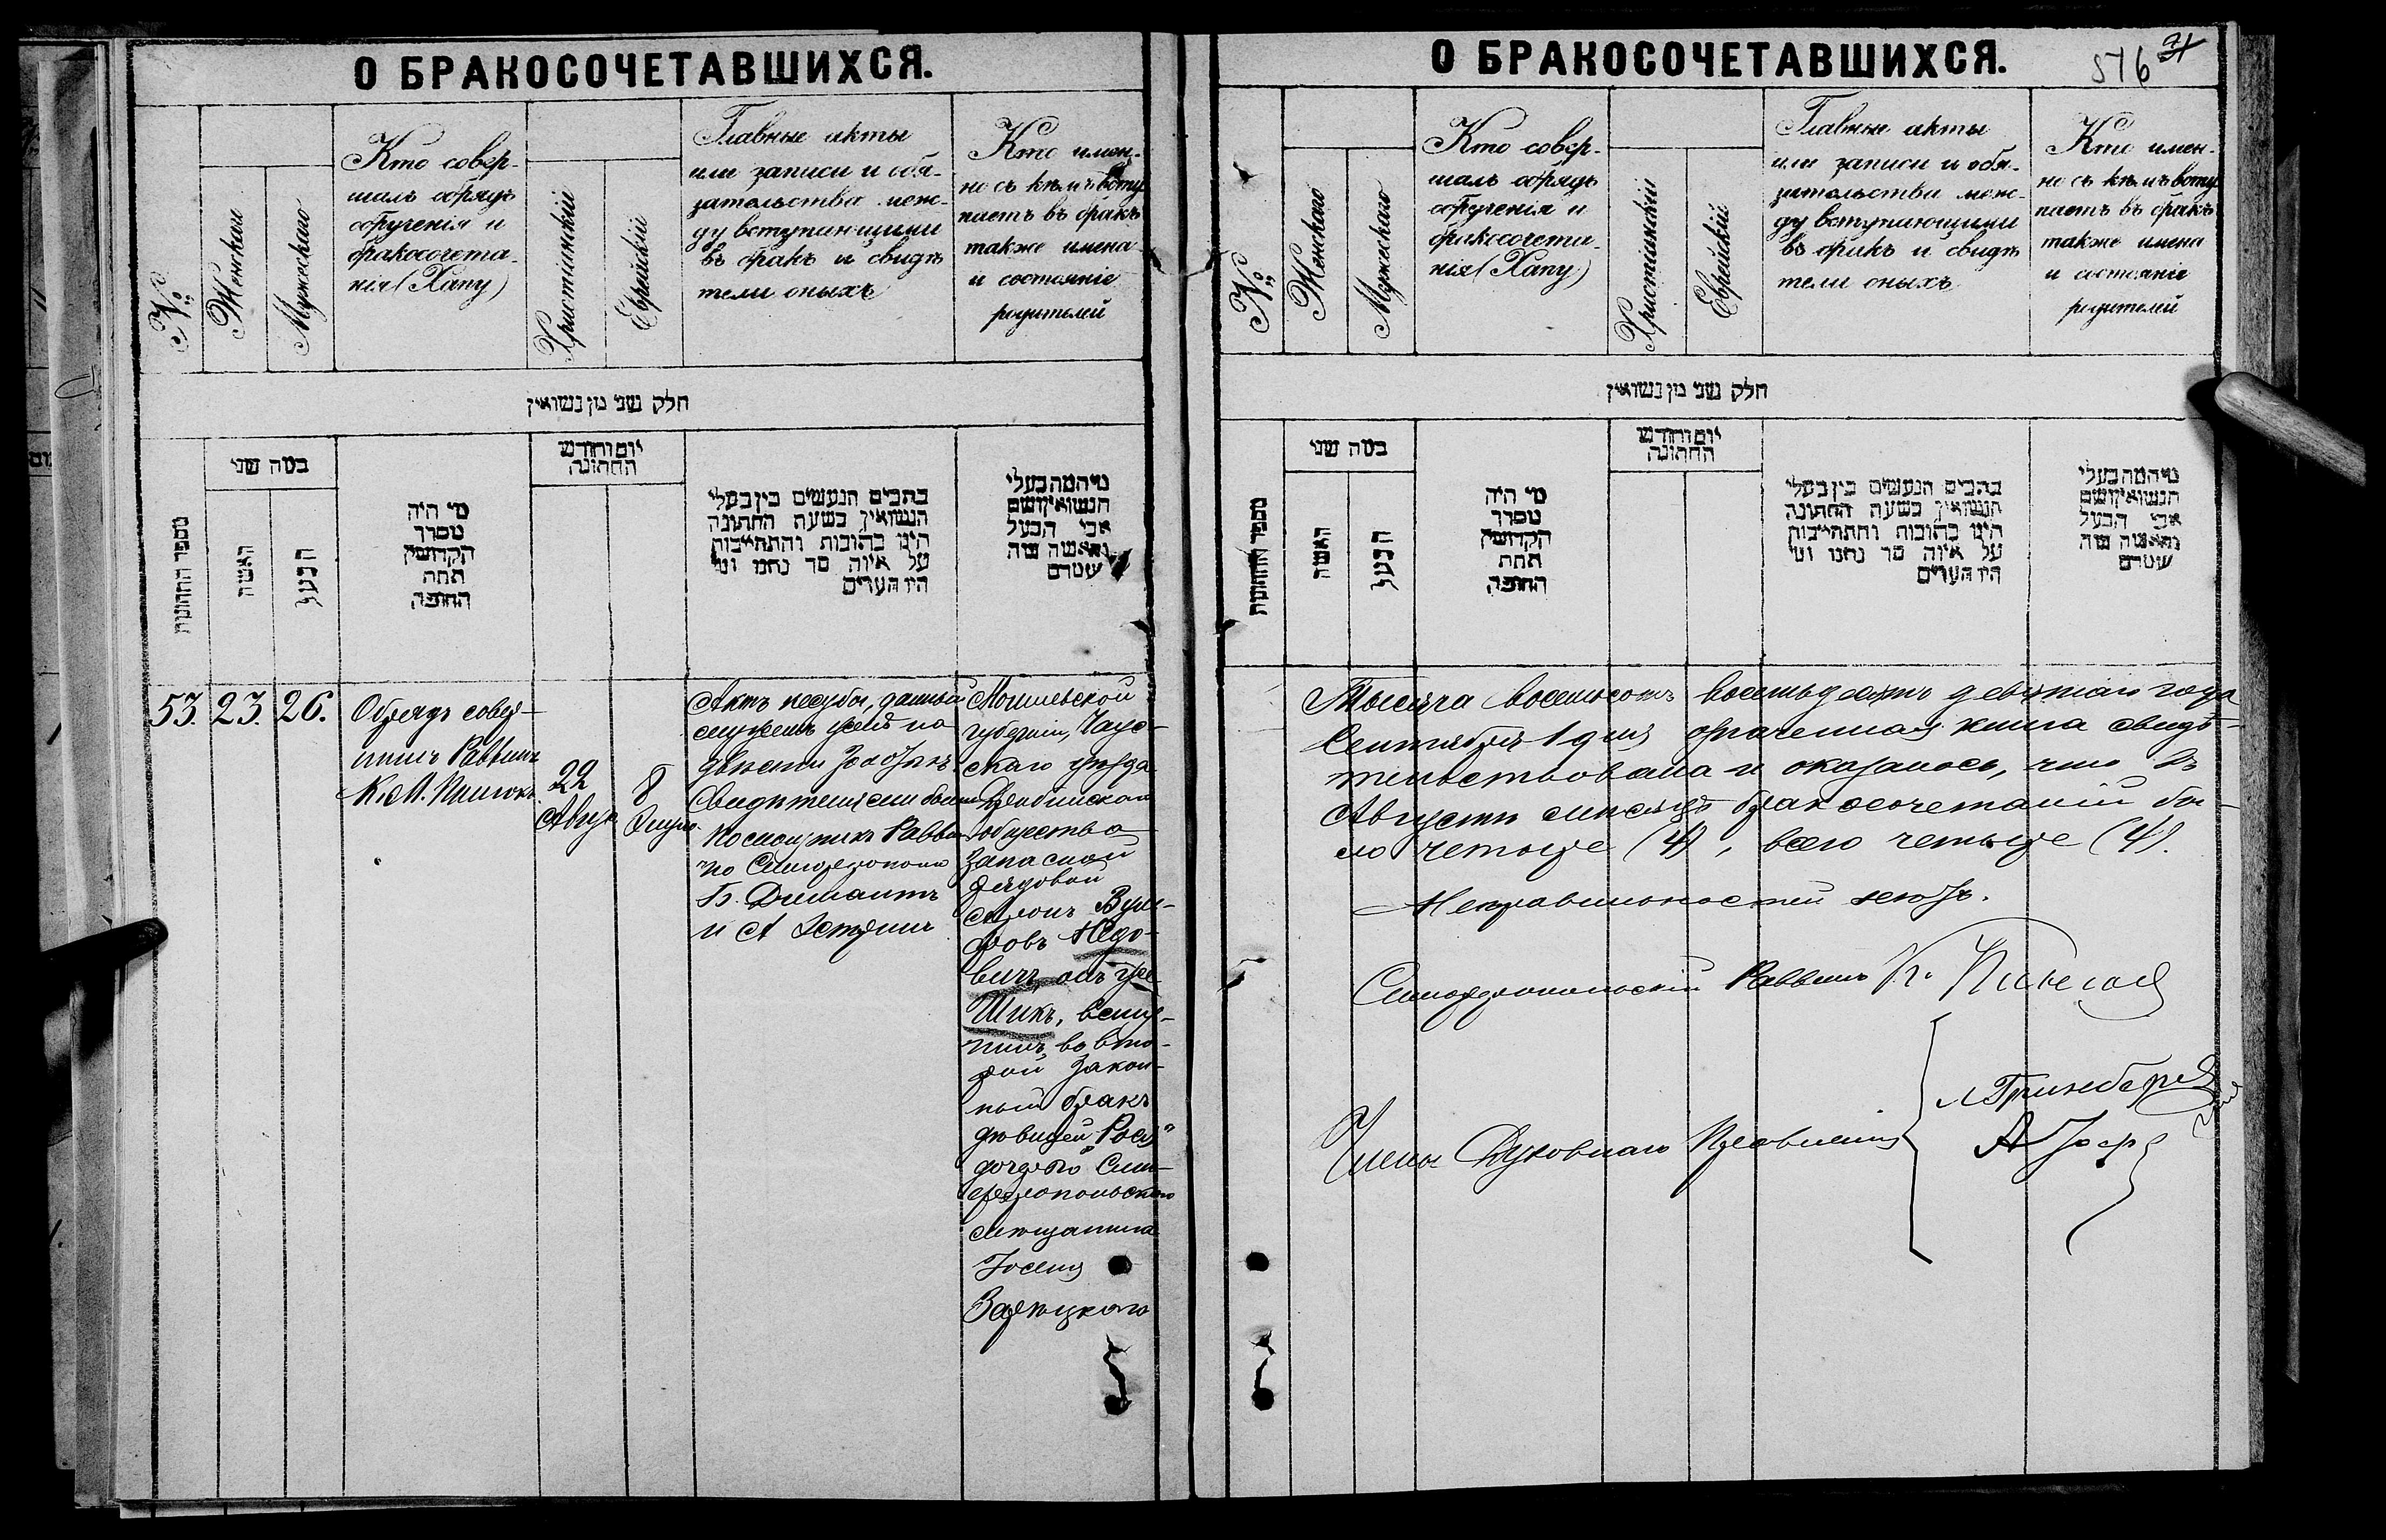 О БРАКОСОЧЕТАВШИХСЯ.
№
Женскаго
Мужескаго
Кто совер-
шалъ обрядъ
обрученія и
бракосочета-
нія (Хапу)
Христіянскій
Еврейскій
Главные акты
или записи и обя-
зательства меж-
ду вступающими
въ бракъ и свидѣ
тели оныхъ
Кто имен-
но съ кѣмъ всту
паетъ въ бракъ
также имена
и состояніе
родителей
חלק שני מן נשואין
מספר החתונות
כמה שני
האשה
הבעל
מי היה
מסדר
הקדושין
תחת
החופה
יום וחודש
החתונה
כתבים הנעשים בין בעלי
הנשואין בשעת החתונה
היינו כתובות והתחייבות
על איזה סך נתנו ומי
היו העדים
מי המה בעלי
הנשואין ושם
אבי הבעל
והאשה ומה
שמרם
53. 23. 26.
Обрядъ совер-
шилъ Раввинъ
К. М.
22
Авгус.
8
Элула
Актъ кесубы, данный
мужемъ женѣ на
двѣсти злотыхъ.
Свидѣтелями были
Помощникъ Раввина
по Симферополю
Б. Димантъ
и А
Могилевской
губерніи, Чаус-
скаго уѣзда
общества
запасной
рядовой
Аронъ Вуль-
фовъ Медо-
вичъ, онъ же
Шикъ, всту-
пилъ во вто-
рой закон-
ный бракъ
дѣвицей "Рося"
дочерью Сим-
феропольскаго
мѣщанина
Іоселя
Зарѣцкаго
О БРАКОСОЧЕТАВШИХСЯ.
576
№
Женскаго
Мужескаго
Кто совер-
шалъ обрядъ
обрученія и
бракосочета-
нія (Хапу)
Христіянскій
Еврейскій
Главные акты
или записи и обя-
зательства меж-
ду вступающими
въ бракъ и свидѣ
тели оныхъ
Кто имен-
но съ кѣмъ всту
паетъ въ бракъ
также имена
и состояніе
родителей
חלק שני מן נשואין
מספר החתונות
כמה שני
האשה
הבעל
מי היה
מסדר
הקדושין
תחת
החופה
יום וחודש
החתונה
כתבים הנעשים בין בעלי
הנשואין בשעת החתונה
היינו כתובות והתחייבות
על איזה סך נתנו ומי
היו העדים
מי המה בעלי
הנשואין ושם
אבי הבעל
והאשה ומה
שמרם
Тысяча восемьсотъ восемьдесятъ девятаго года
Сентября 1 дня брачная книга свидѣ-
тельствована и оказалось, что въ
Августѣ мѣсяцѣ бракосочетаній бы-
ло четыре (4), всего четыре (4).
Неправильностей нѣтъ.
Симферопольскій Раввинъ К.
Члены Духовнаго Правленія
Гринберг
А